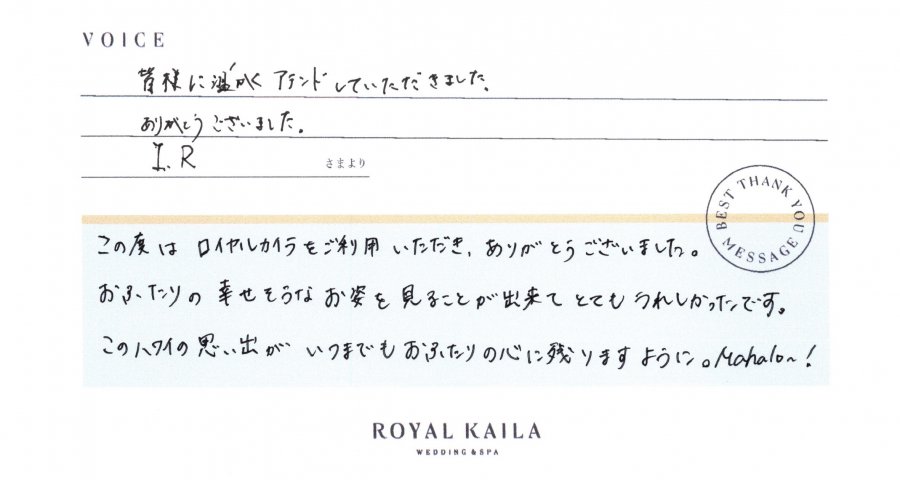 VOICE
皆様に温かく アテンドしていただきました。
ありがとうございました。
I.R さまより
BEST THANK YOU MESSAGE
この度は ロイヤルカイラをご利用いただき、ありがとうございました。
おふたりの幸せそうなお姿を見ることが出来てとてもうれしかったです。
このハワイの思い出が いつまでもおふたりの心に残りますように。Mahalo~!
ROYAL KAILA
WEDDING & SPA